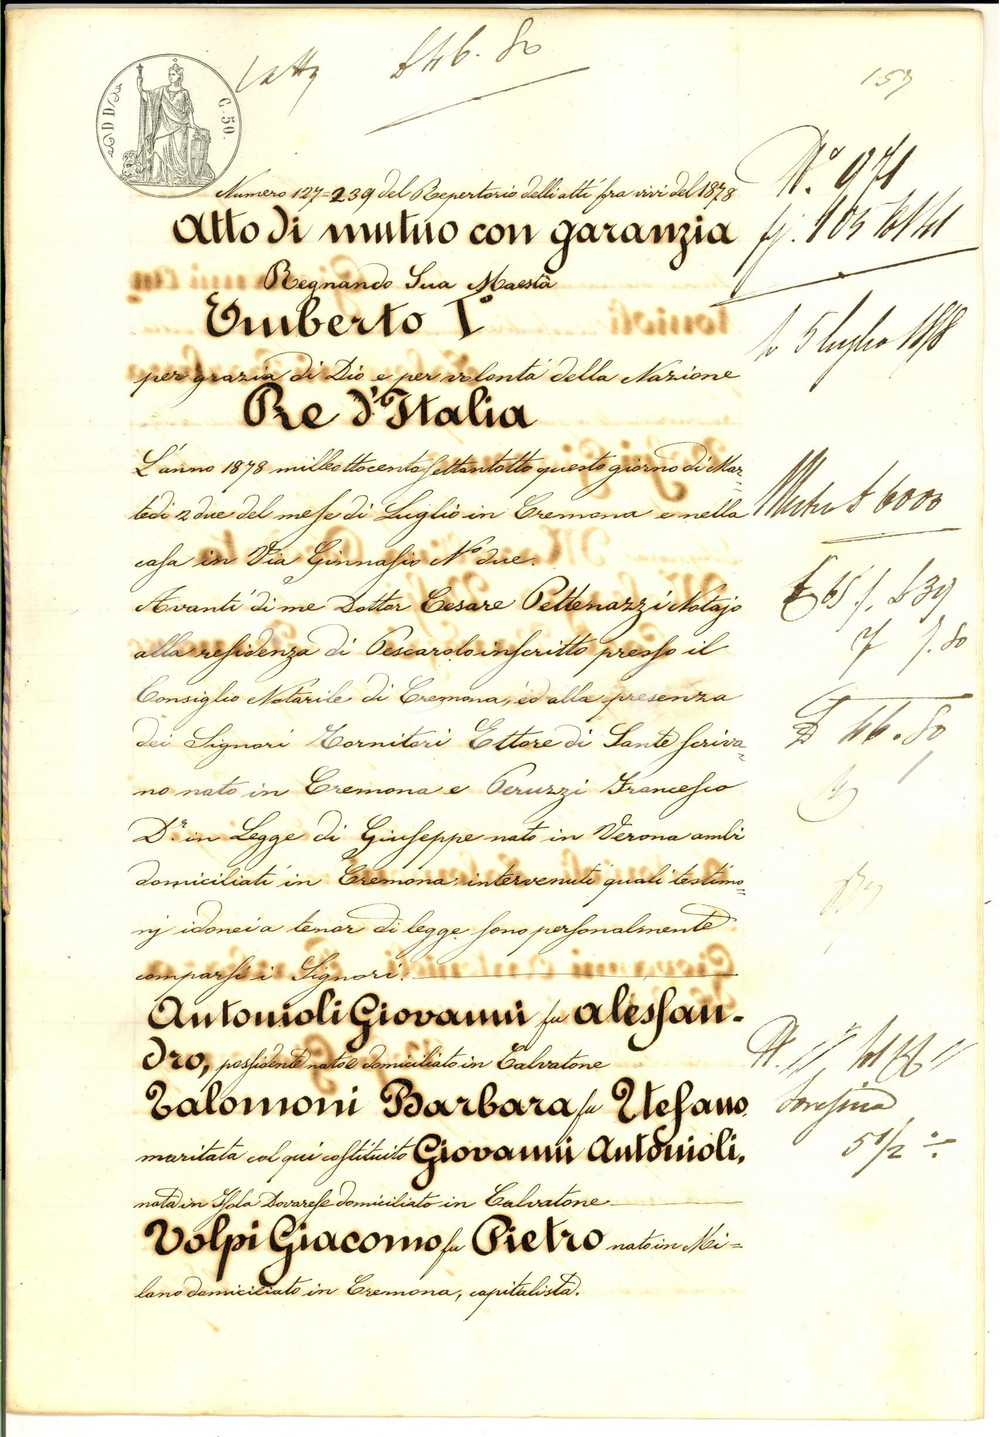 £ 46.80
157
C. 50.
Numero 127=239 del Repertorio delli atti fra vivi del 1878
Atto di mutuo con garanzia
Regnando Sua Maestà
Umberto I°
per grazia di Dio e per volontà della Nazione
Re d'Italia
L'anno 1878 milleottocentosettantotto questo giorno di Mar=
tedi 2 due del mese di Luglio in Cremona e nella
casa in Via Ginnasio N° due.
Avanti di me Dottor Cesare Pettenazzi Notajo
alla residenza di Pescarolo inscritto presso il
Consiglio Notarile di Cremona, ed alla presenza
dei Signori Tornitori Ettore di Sante scriva=
no nato in Cremona e Peruzzi Francesco
Dr. in Legge di Giuseppe nato in Verona ambi
domiciliati in Cremona, intervenuti quali testimo=
nj idonei a tenor di legge sono personalmente
comparsi i Signori.
Antonioli Giovanni fu Alessan-
dro, possidente nato e domiciliato in Calvatone
Talomoni Barbara fu Stefano
maritata col qui costituito Giovanni Antonioli,
nata in Isola Dovarese domiciliato in Calvatone
Volpi Giacomo fu Pietro nato in Mi=
lano domiciliato in Cremona, capitalista.
N.° 971
li 5 luglio 1878
Mutuo £ 6000
£ 39
7.80
£ 46.80
Soresina
5 1/2